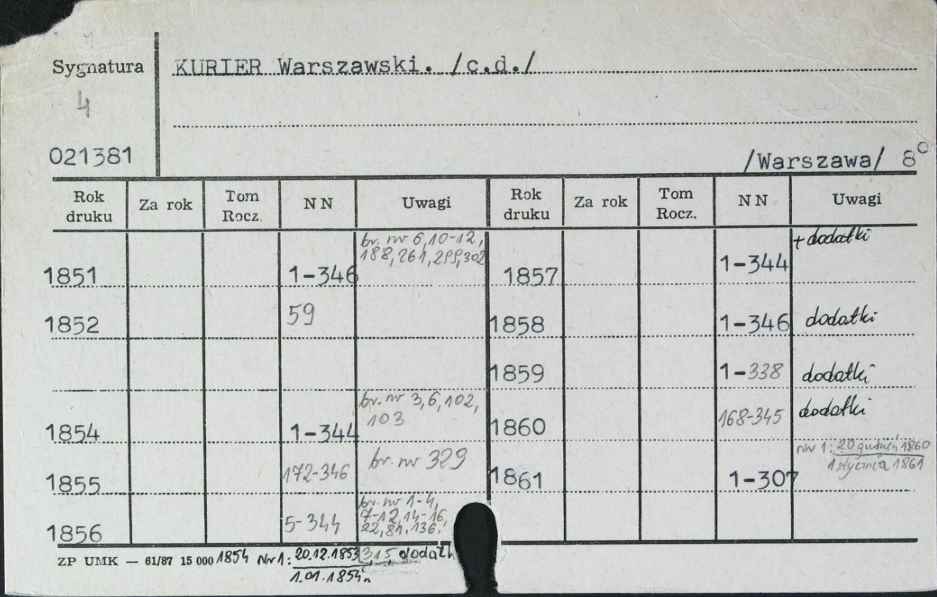 Sygnatura KURIER Warszawski. /c.d./
4
021381 /Warszawa/ 8°
Rok druku Za rok Tom Rocz. NN Uwagi Rok druku Za rok Tom Rocz. NN Uwagi
1851 1-346 br. nr 6,10-12, 188,261,299,302 1857 1-344 + dodatki
1852 59 1858 1-346 dodatki
1859 1-338 dodatki
1854 1-344 br. nr 3,6,102, 103 1860 168-345 dodatki
1855 172-346 br. nr 329 1861 1-307 nr 1: 20 grudzień 1860
1 stycznia 1861
1856 5-344 br. nr 1-4, 7-12,14-16, 22,84,136.
ZP UMK — 61/87 15 000 1854 Nr 1: 20.12.1853
1.01.1854